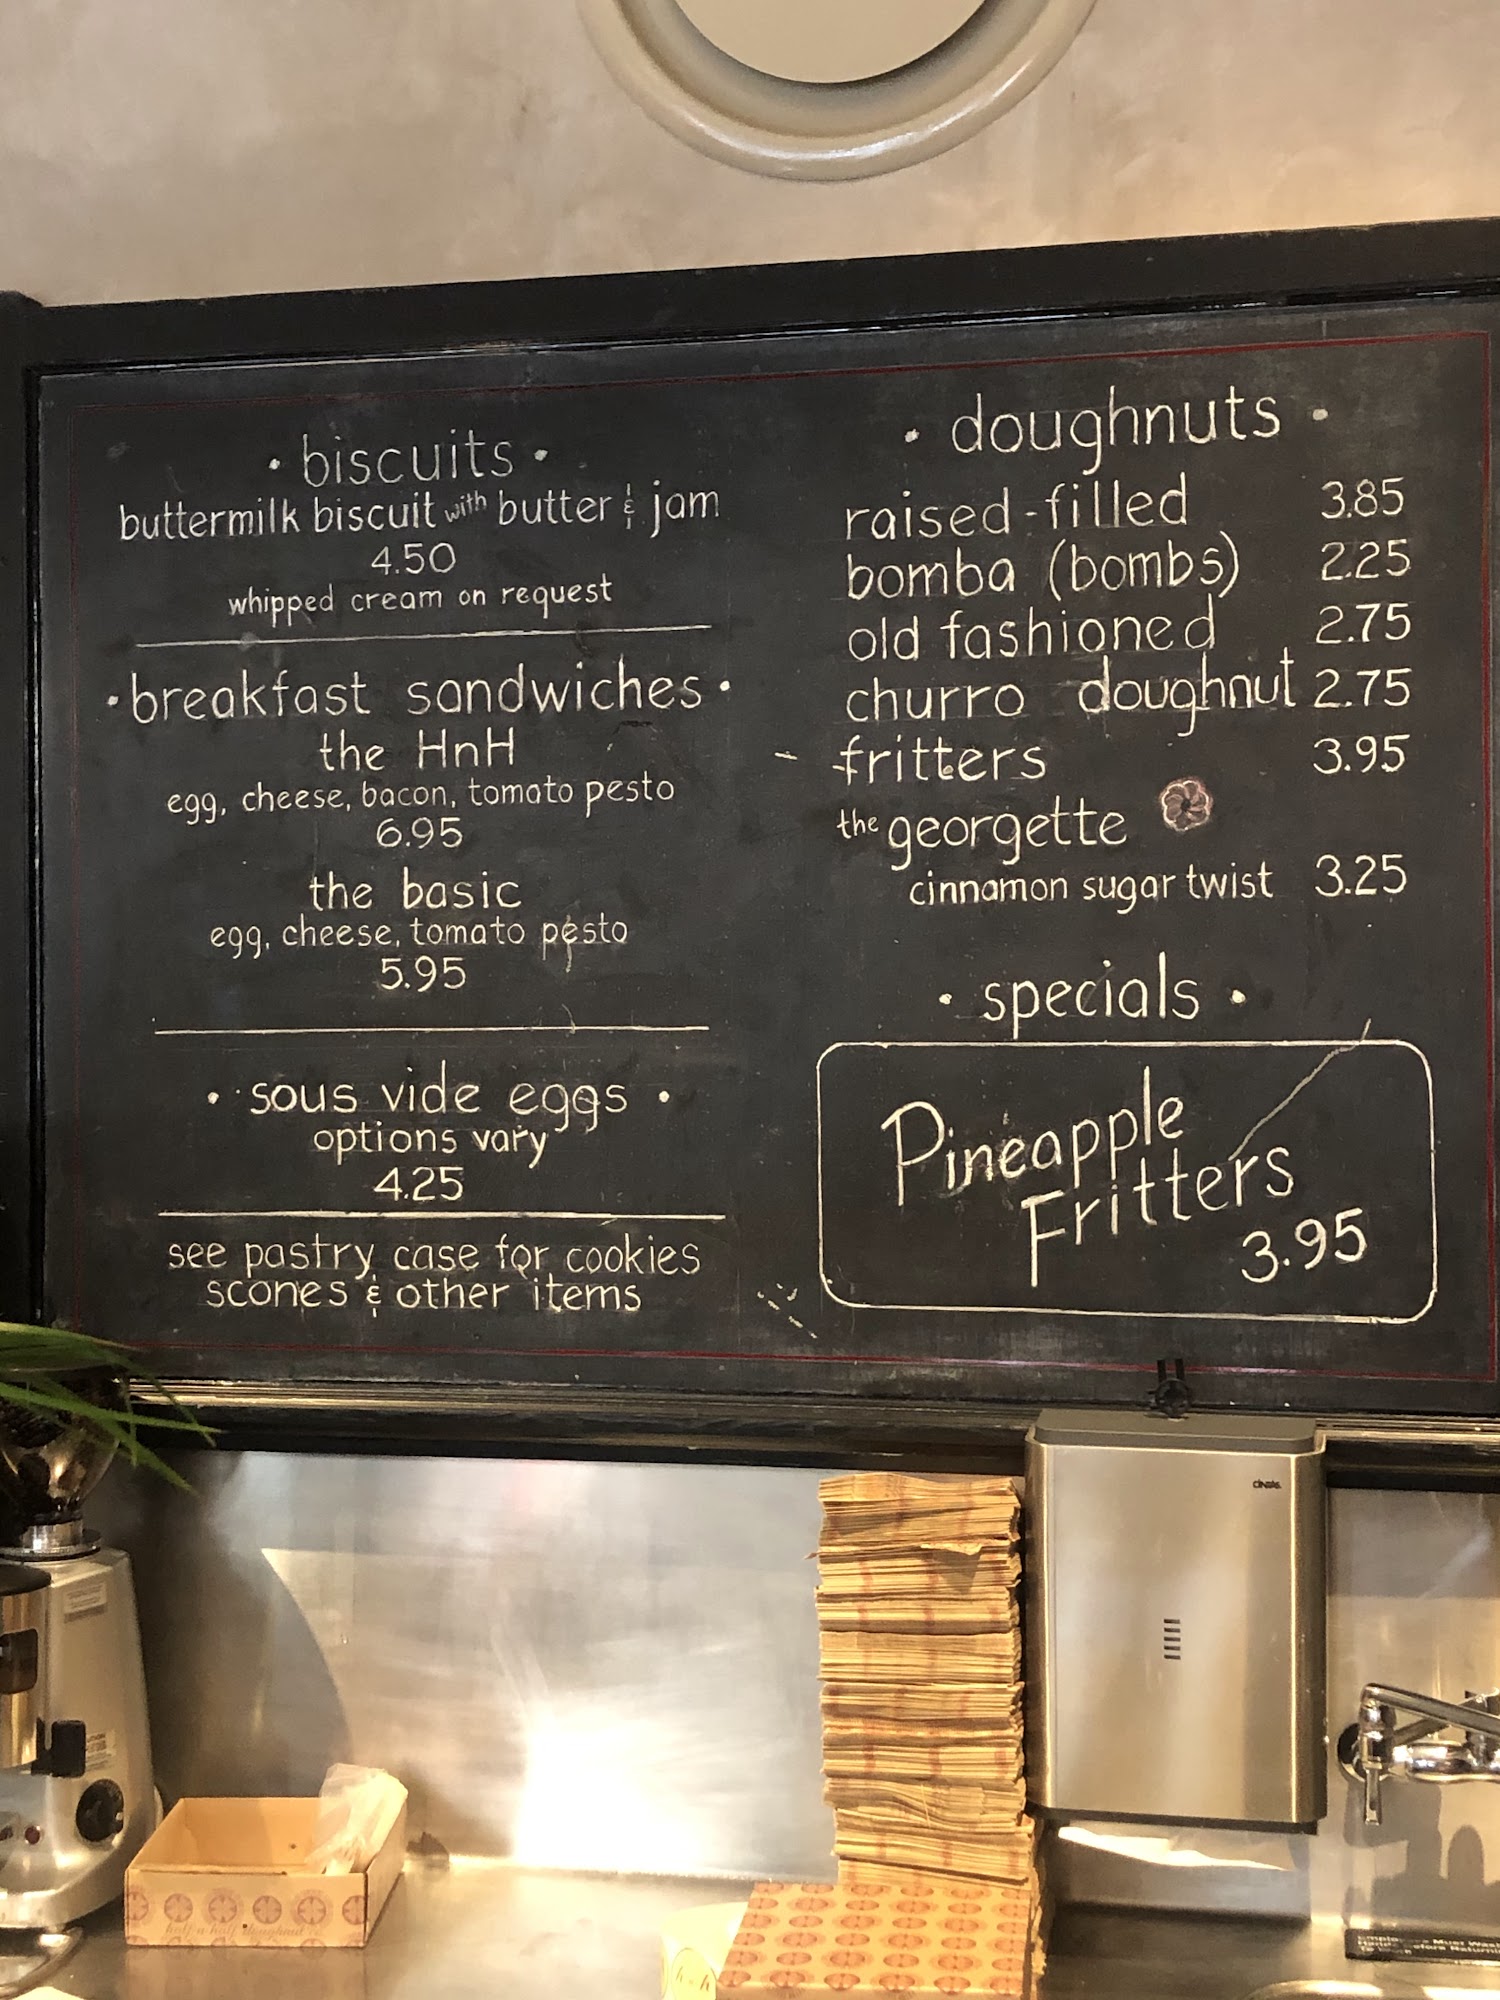 · biscuits ·
buttermilk biscuit with butter & jam
4.50
whipped cream on request
· breakfast sandwiches ·
the HnH
egg, cheese, bacon, tomato pesto
6.95
the basic
egg, cheese, tomato pesto
5.95
· sous vide eggs ·
options vary
4.25
see pastry case for cookies
scones & other items
· doughnuts ·
raised-filled 3.85
bomba (bombs) 2.25
old fashioned 2.75
churro doughnut 2.75
fritters 3.95
the georgette
cinnamon sugar twist 3.25
· specials ·
Pineapple
Fritters
3.95
CINTAS
half n half doughnut
h n h
Employees Must Wash
Hands Before Returning